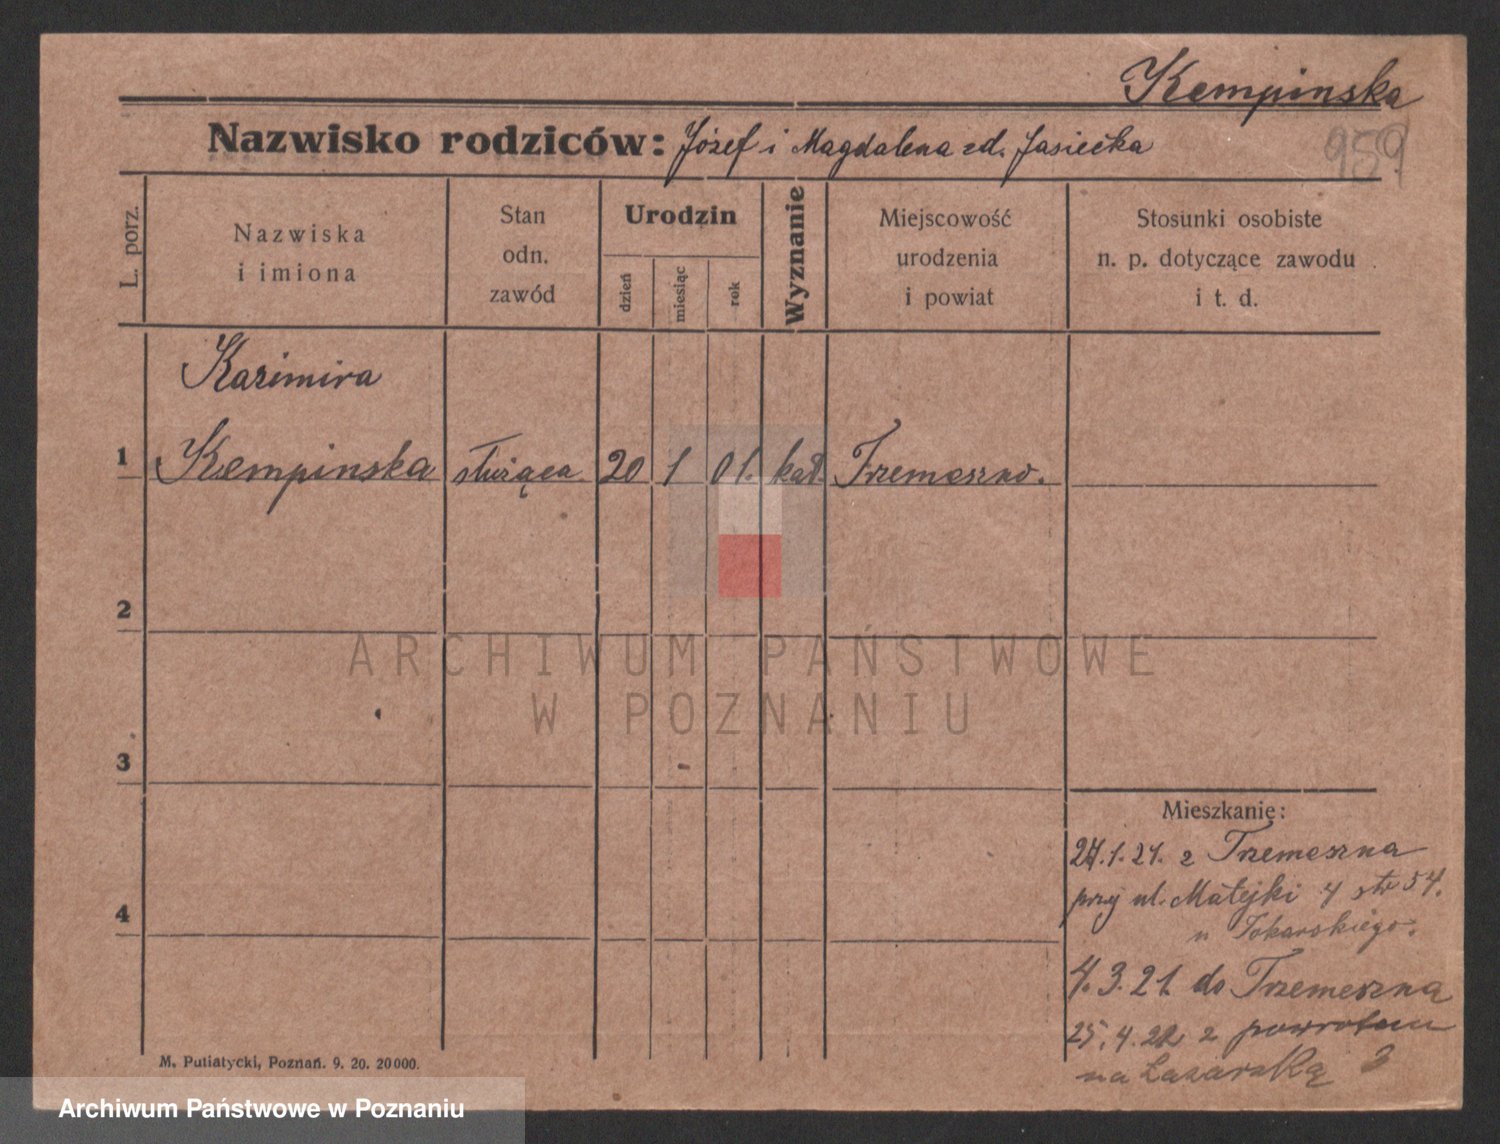 Kempinska
Nazwisko rodziców: Józef i Magdalena zd. Jasiecka
959
L. porz.
Nazwiska
i imiona
Stan
odn.
zawód
Urodzin
dzień
miesiąc
rok
Wyznanie
Miejscowość
urodzenia
i powiat
Stosunki osobiste
n. p. dotyczące zawodu
i t. d.
Kazimira
1 Kempinska służąca 20 1 01. kat. Trzemeszno.
2
ARCHIWUM PAŃSTWOWE
W POZNANIU
3
Mieszkanie:
1.21. z Trzemeszna
przy ul. Matejki 4 str 54.
u Tokarskiego.
4
4.3.21 do Trzemeszna
25.4.22 z powrotem
na Lazarską 3
M. Putiatycki, Poznań. 9. 20. 20000.
Archiwum Państwowe w Poznaniu